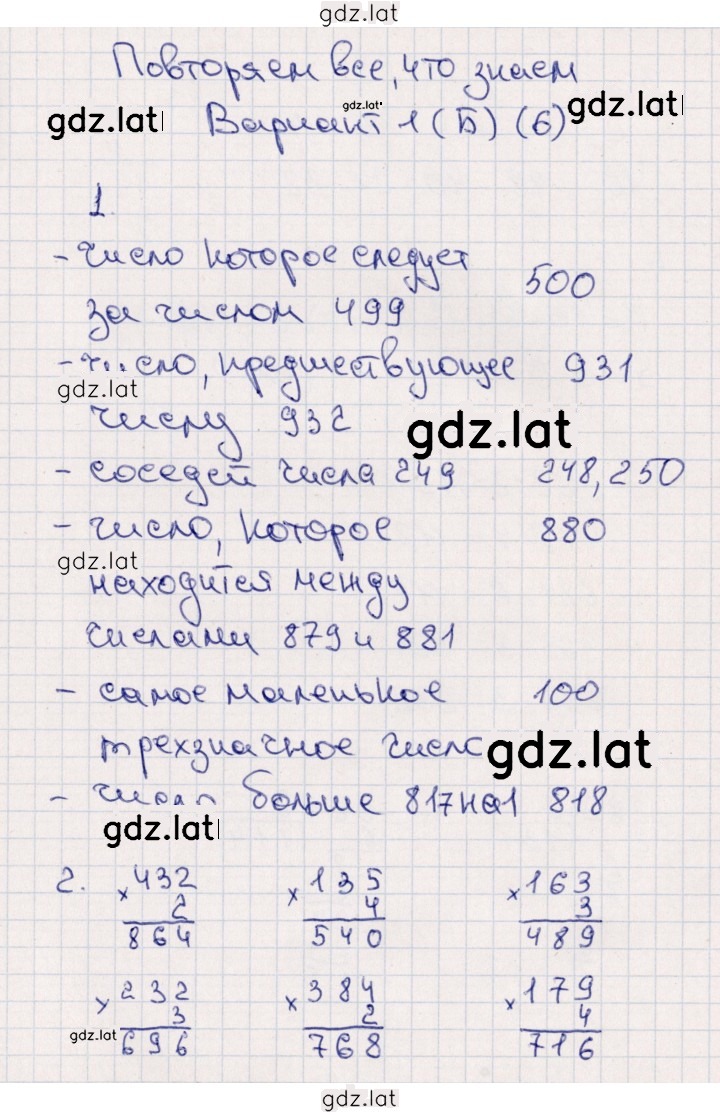 gdz.lat
Повторяем все, что знаем
gdz.lat gdz.lat gdz.lat
Вариант 1 (Б) (6)
1.
- число которое следует 500
за числом 499
- число, предшествующее 931
gdz.lat
числу 932
gdz.lat
- соседей числа 249 248, 250
- число, которое 880
gdz.lat
находится между
числами 879 и 881
- самое маленькое 100
трехзначное число
gdz.lat
- число больше 817 на 1 818
gdz.lat
2. × 432 × 135 × 163
2 4 3
864 540 489
× 232 × 384 × 179
gdz.lat 3 2 4
696 768 716
gdz.lat